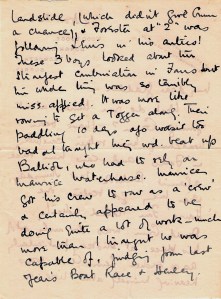 landslide, (which didn't give
a chance), & Forster at "2" was
following this in his antics!
These 3 boys looked about the
strongest combination in but
the whole thing was so terribly
miss-applied. It was more like
rowing to get a Togger along. Their
paddling 10 days ago wasn't too
bad and I thought they wd. beat up
Balliol, who had to rely on
Maurice Waterhouse. Maurice
got his crew to row as a 'crew'
& certainly appeared to be
doing quite a lot of work – much
more than I thought he was
capable of, judging from last
year's Boat Race & Henley.